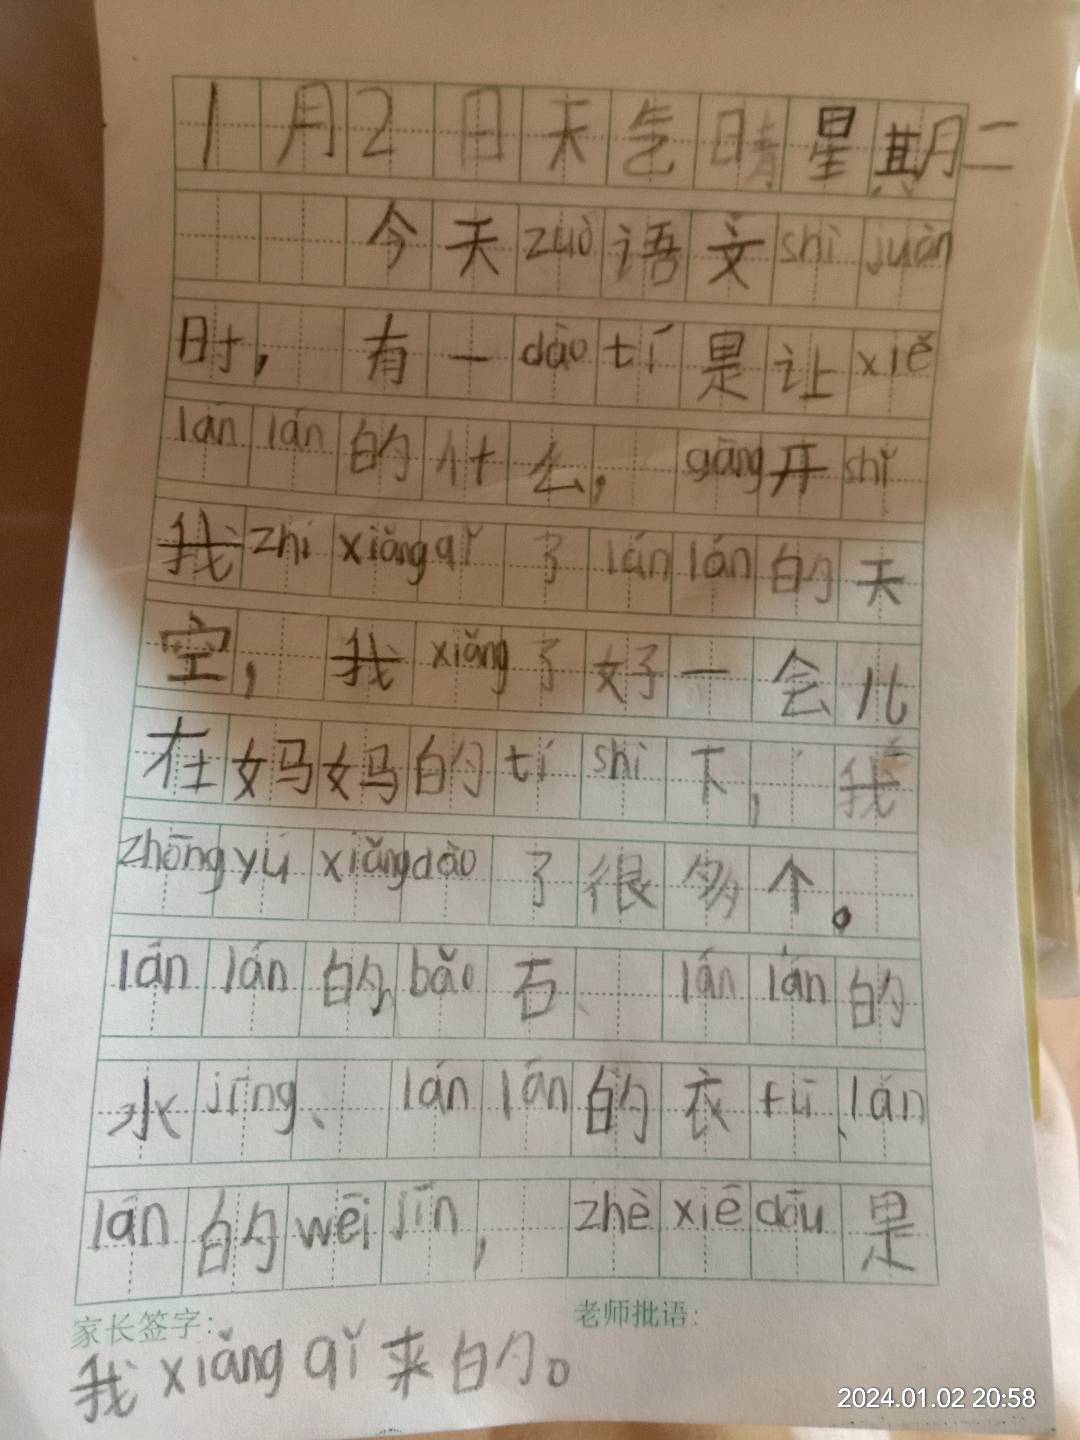 1月2日天气晴星期二
今天zuò语文shì juàn
时，有一dào tí是让xiě
lán lán的什么，gāng开shǐ
我zhǐ xiǎng qǐ了lán lán的天
空，我xiǎng了好一会儿
在妈妈的tí shì下，我
zhōng yú xiǎng dào了很多个。
lán lán的bǎo石、lán lán的
水jīng、lán lán的衣fú、lán
lán的wēi jīn，zhè xiē dōu是
家长签字：
老师批语：
我xiǎng qǐ来的。
2024.01.02 20:58